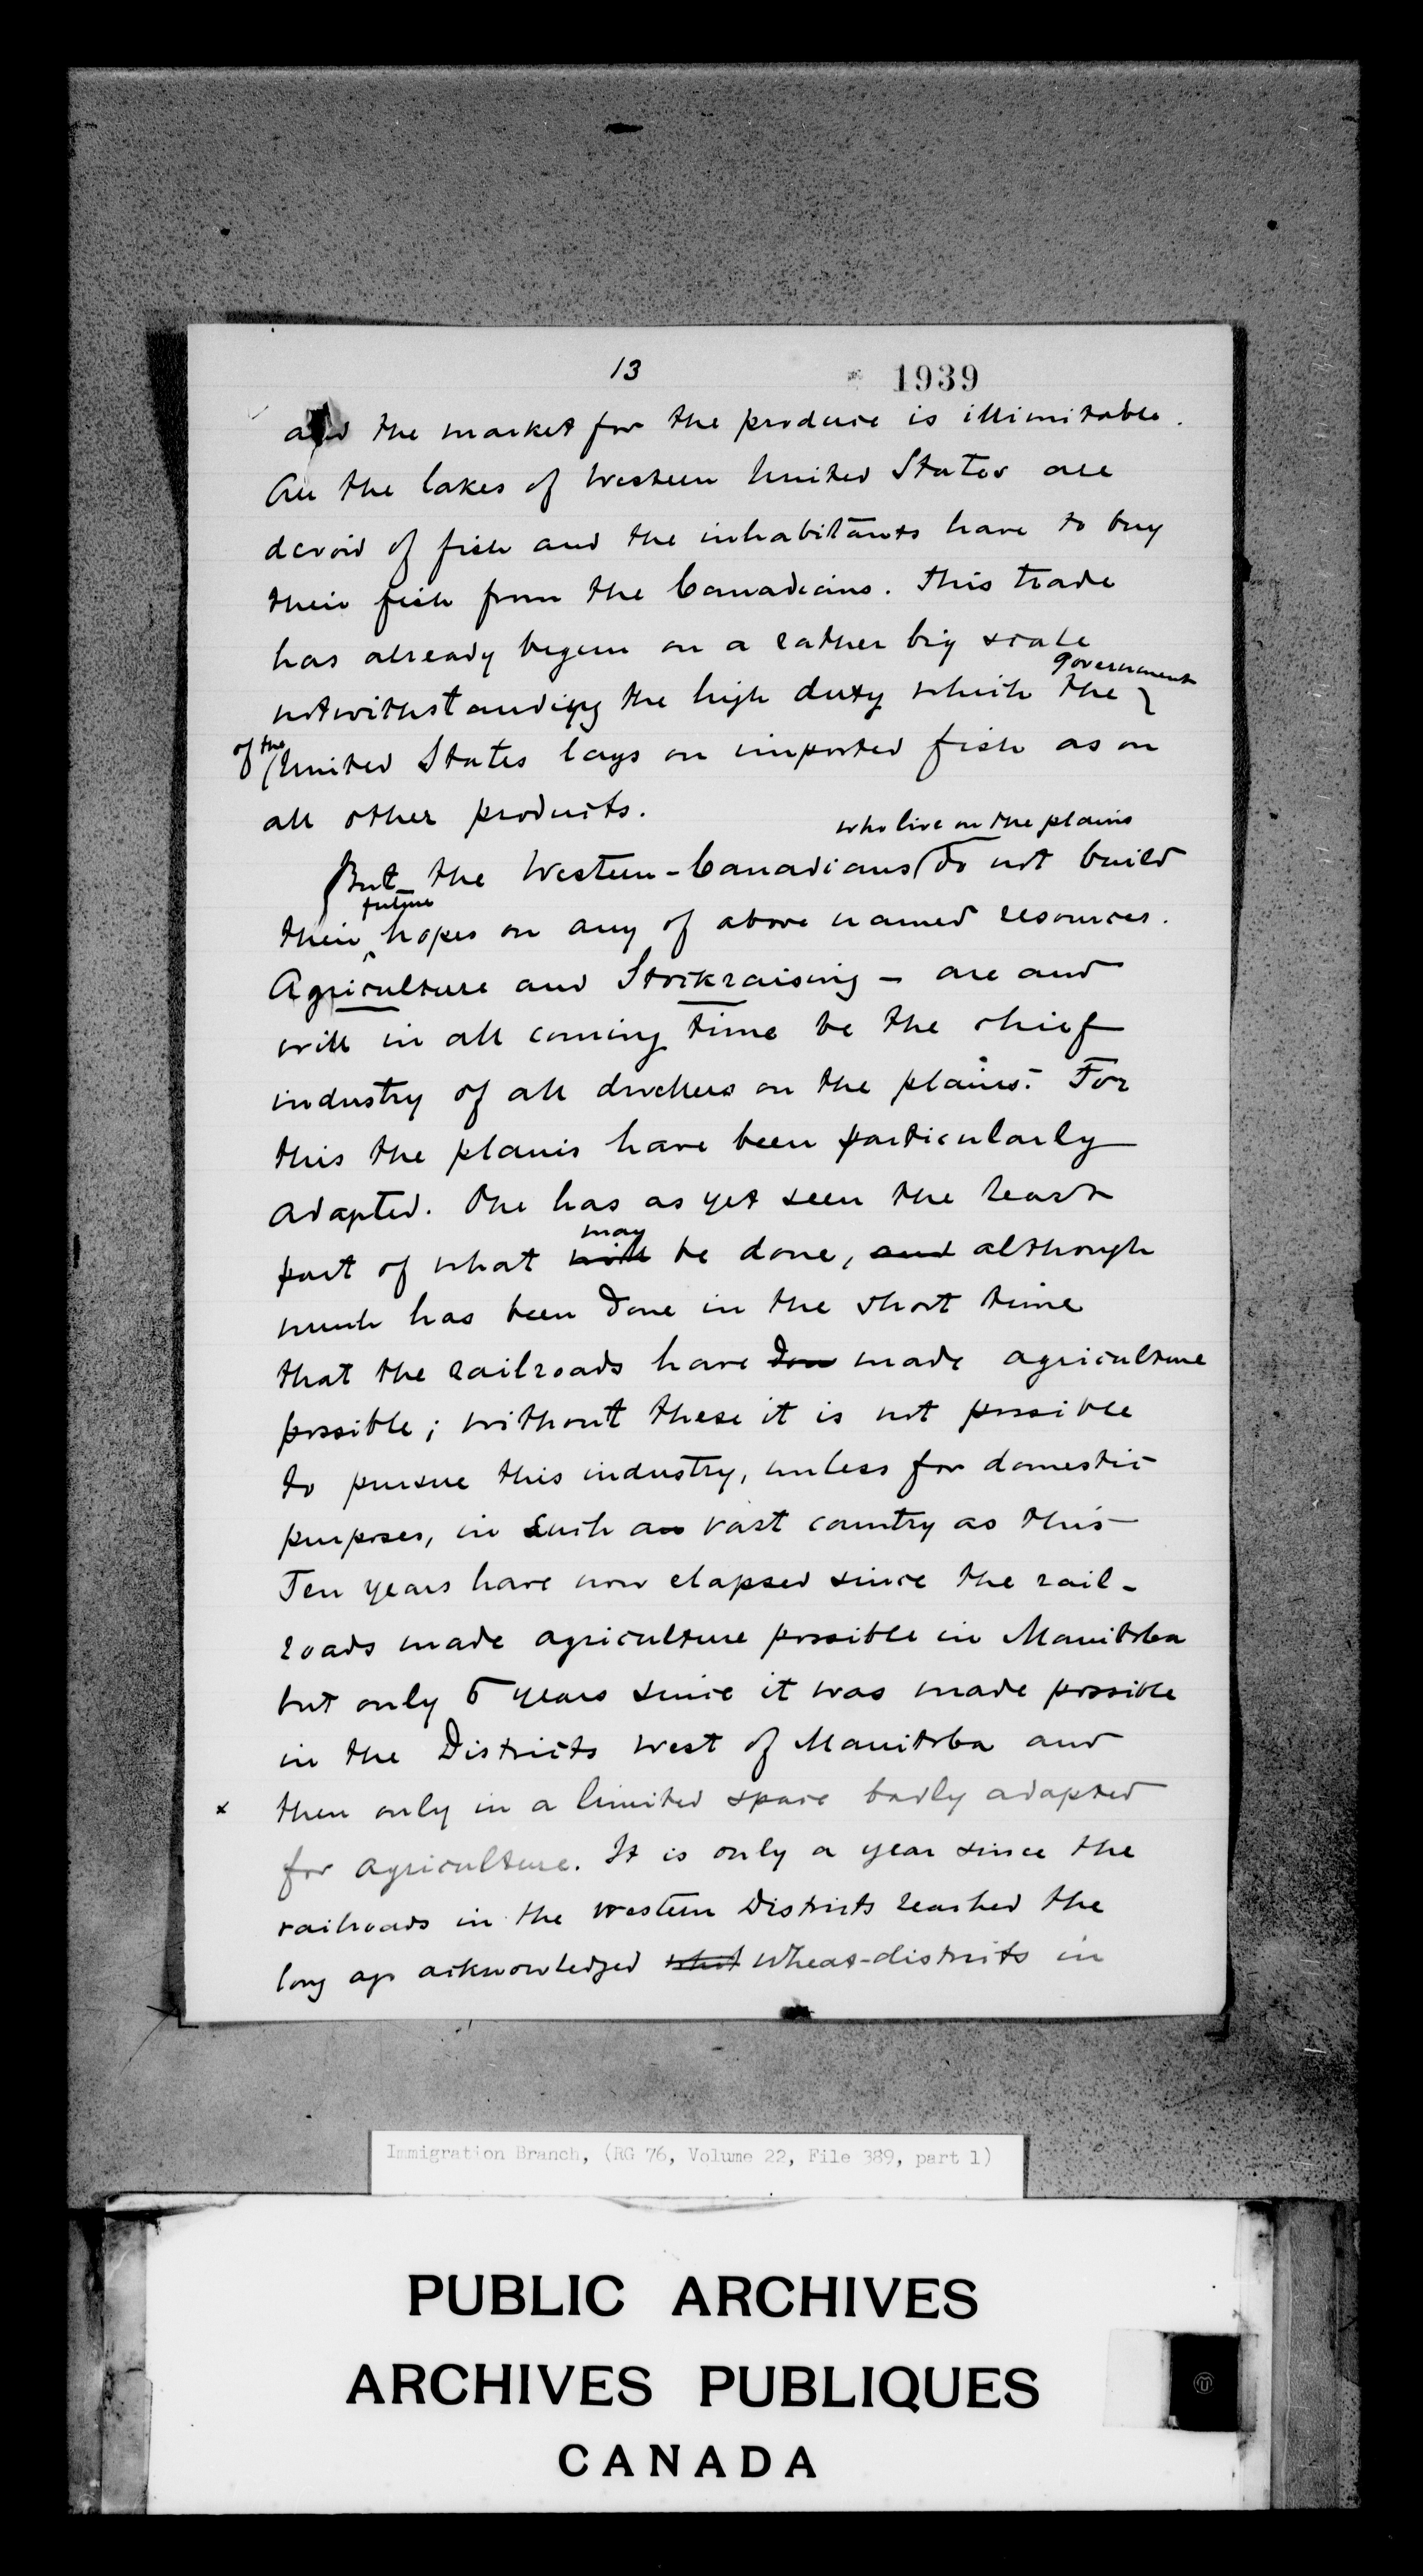 13
1939
and the market for the produce is illimitable.
All the lakes of Western United States are
devoid of fish and the inhabitants have to buy
their fish from the Canadians. This trade
has already begun on a rather big scale
government
notwithstanding the high duty which the
of the United States lays on imported fish as on
all other products.
who live on the plains
But the Western-Canadians do not build
future
their hopes on any of above named resources.
Agriculture and Stockraising - are and
will in all coming time be the chief
industry of all dwellers on the plains. For
this the plains have been particularly
adapted. One has as yet seen the least
may
part of what will be done, and although
much has been done in the short time
that the railroads have don made agriculture
possible; without these it is not possible
to pursue this industry, unless for domestic
purposes, in such a vast country as this
Ten years have now elapsed since the rail-
roads made agriculture possible in Manitoba
but only 5 years since it was made possible
in the Districts west of Manitoba and
x then only in a limited space badly adapted
for agriculture. It is only a year since the
railroads in the western Districts reached the
long ago acknowledged wheat-districts in
Immigration Branch, (RG 76, Volume 22, File 389, part 1)
PUBLIC ARCHIVES
ARCHIVES PUBLIQUES
CANADA